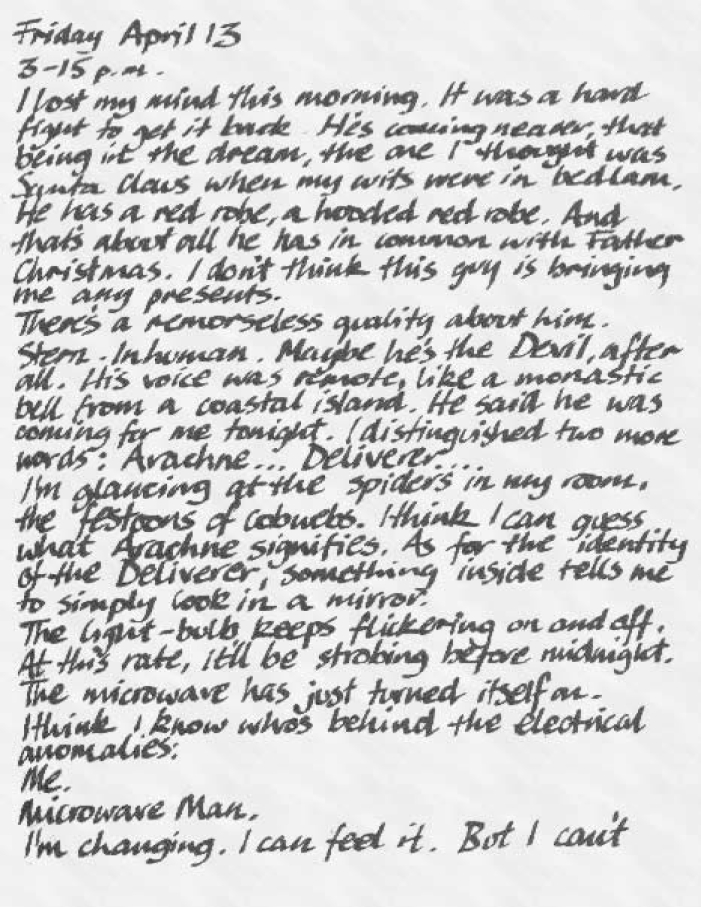 Friday April 13
3-15 p.m.
I lost my mind this morning. It was a hard
fight to get it back. He's coming nearer, that
being in the dream, the one I thought was
Santa Claus when my wits were in bedlam.
He has a red robe, a hooded red robe. And
that's about all he has in common with Father
Christmas. I don't think this guy is bringing
me any presents.
There's a remorseless quality about him.
Stern. Inhuman. Maybe he's the Devil, after
all. His voice was remote, like a monastic
bell from a coastal island. He said he was
coming for me tonight. I distinguished two more
words: Arachne... Deliverer....
I'm glancing at the spiders in my room,
the festoons of cobwebs. I think I can guess
what Arachne signifies. As for the identity
of the Deliverer, something inside tells me
to simply look in a mirror.
The light-bulb keeps flickering on and off.
At this rate, it'll be strobing before midnight.
The microwave has just turned itself on.
I think I know who's behind the electrical
anomalies:
Me.
Microwave Man.
I'm changing. I can feel it. But I can't